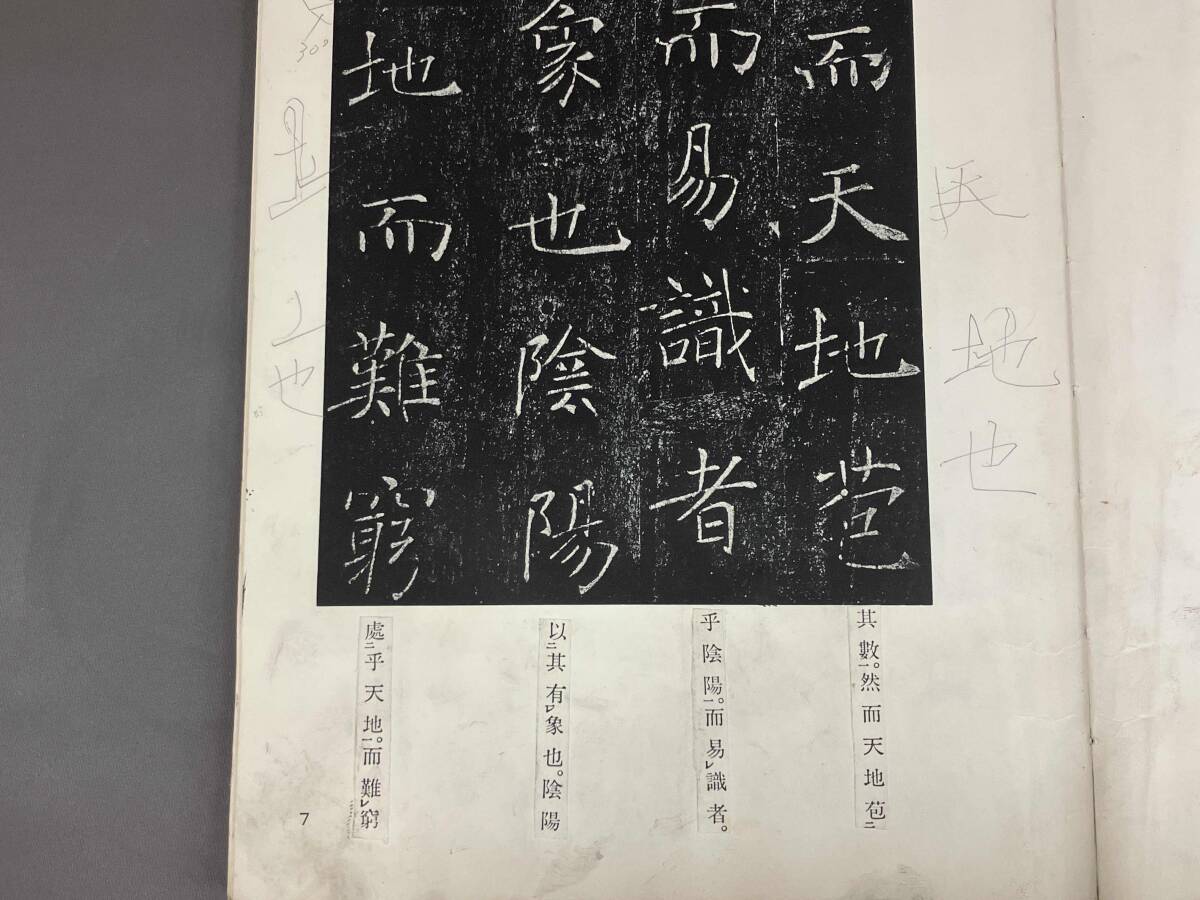 而天地苞
而易識者
象也陰陽
地而難窮
其數一。然而天地苞二
乎陰陽一。而易レ識者。
以二其有レ象也。陰陽
處二乎天地一。而難レ窮
天
地
也
30°
上
也
7